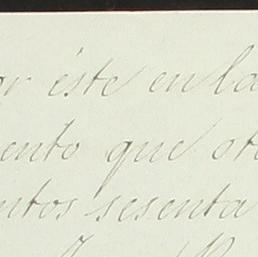 or éste en la
ento que ot
ntos sesenta